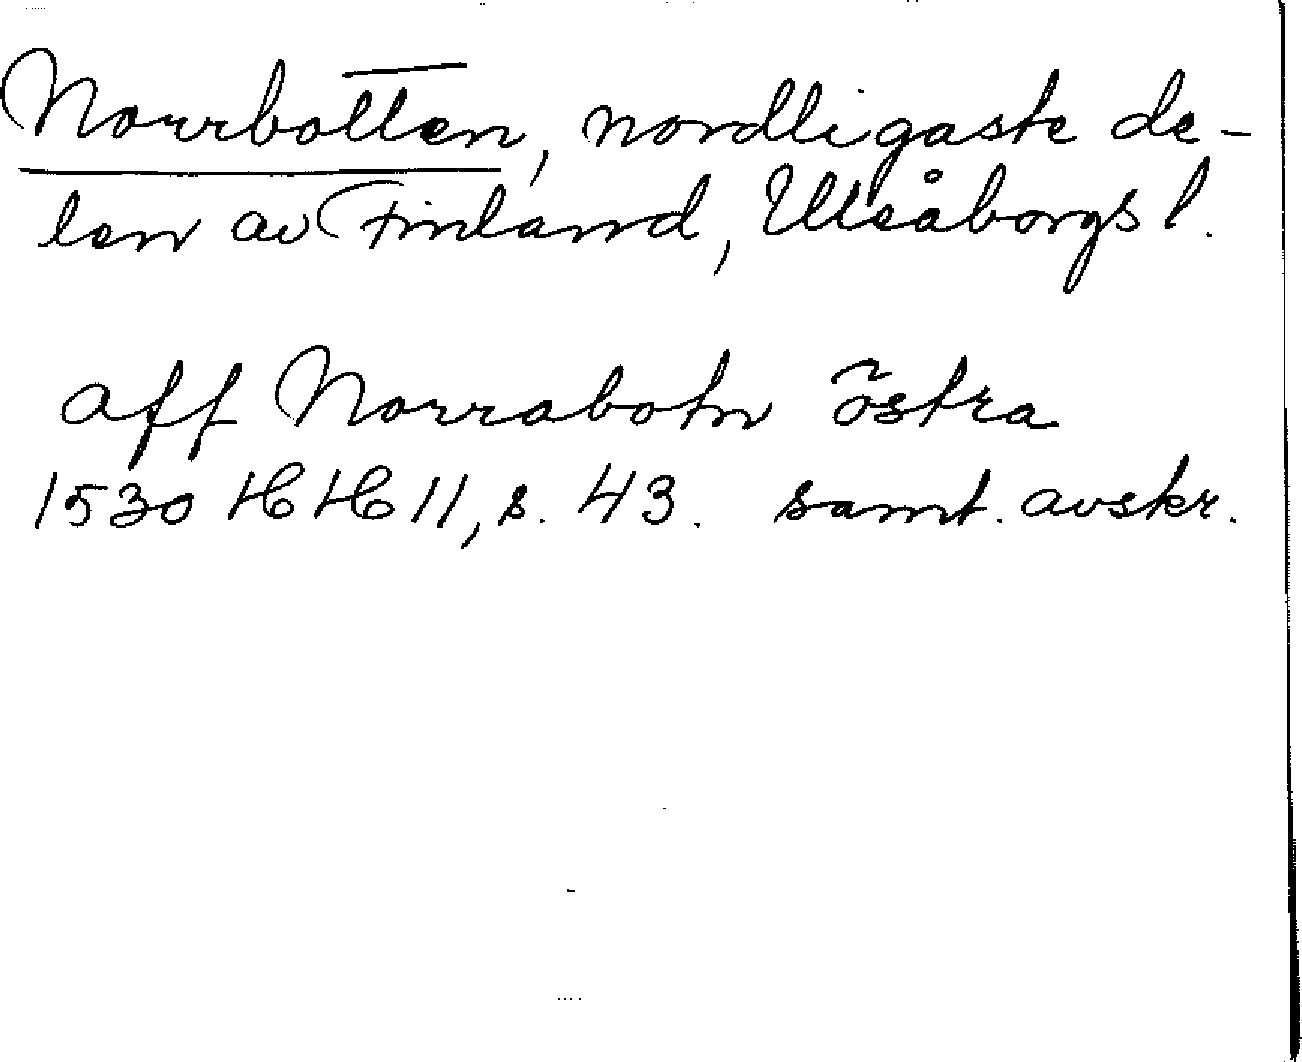 Norrbotten, nordligaste de-
len av Finland, Uleåborgs l.
aff Norrabotn östra
1530 HH 11, s. 43. samt. avskr.